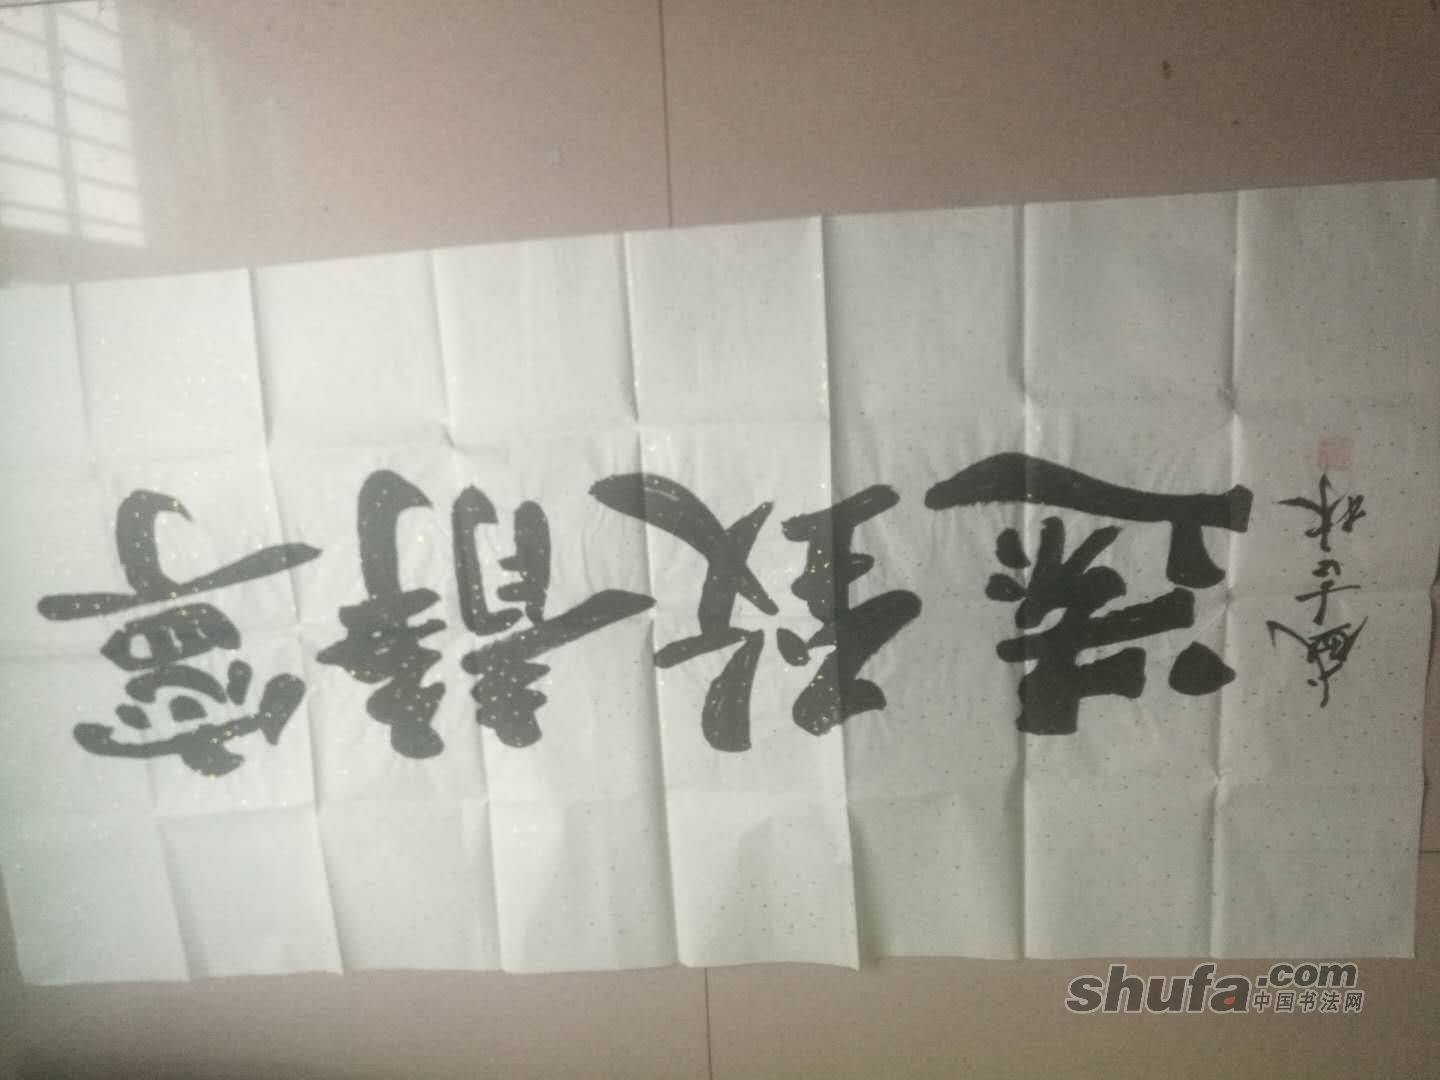 寧靜致遠
shufa.com
中国书法网